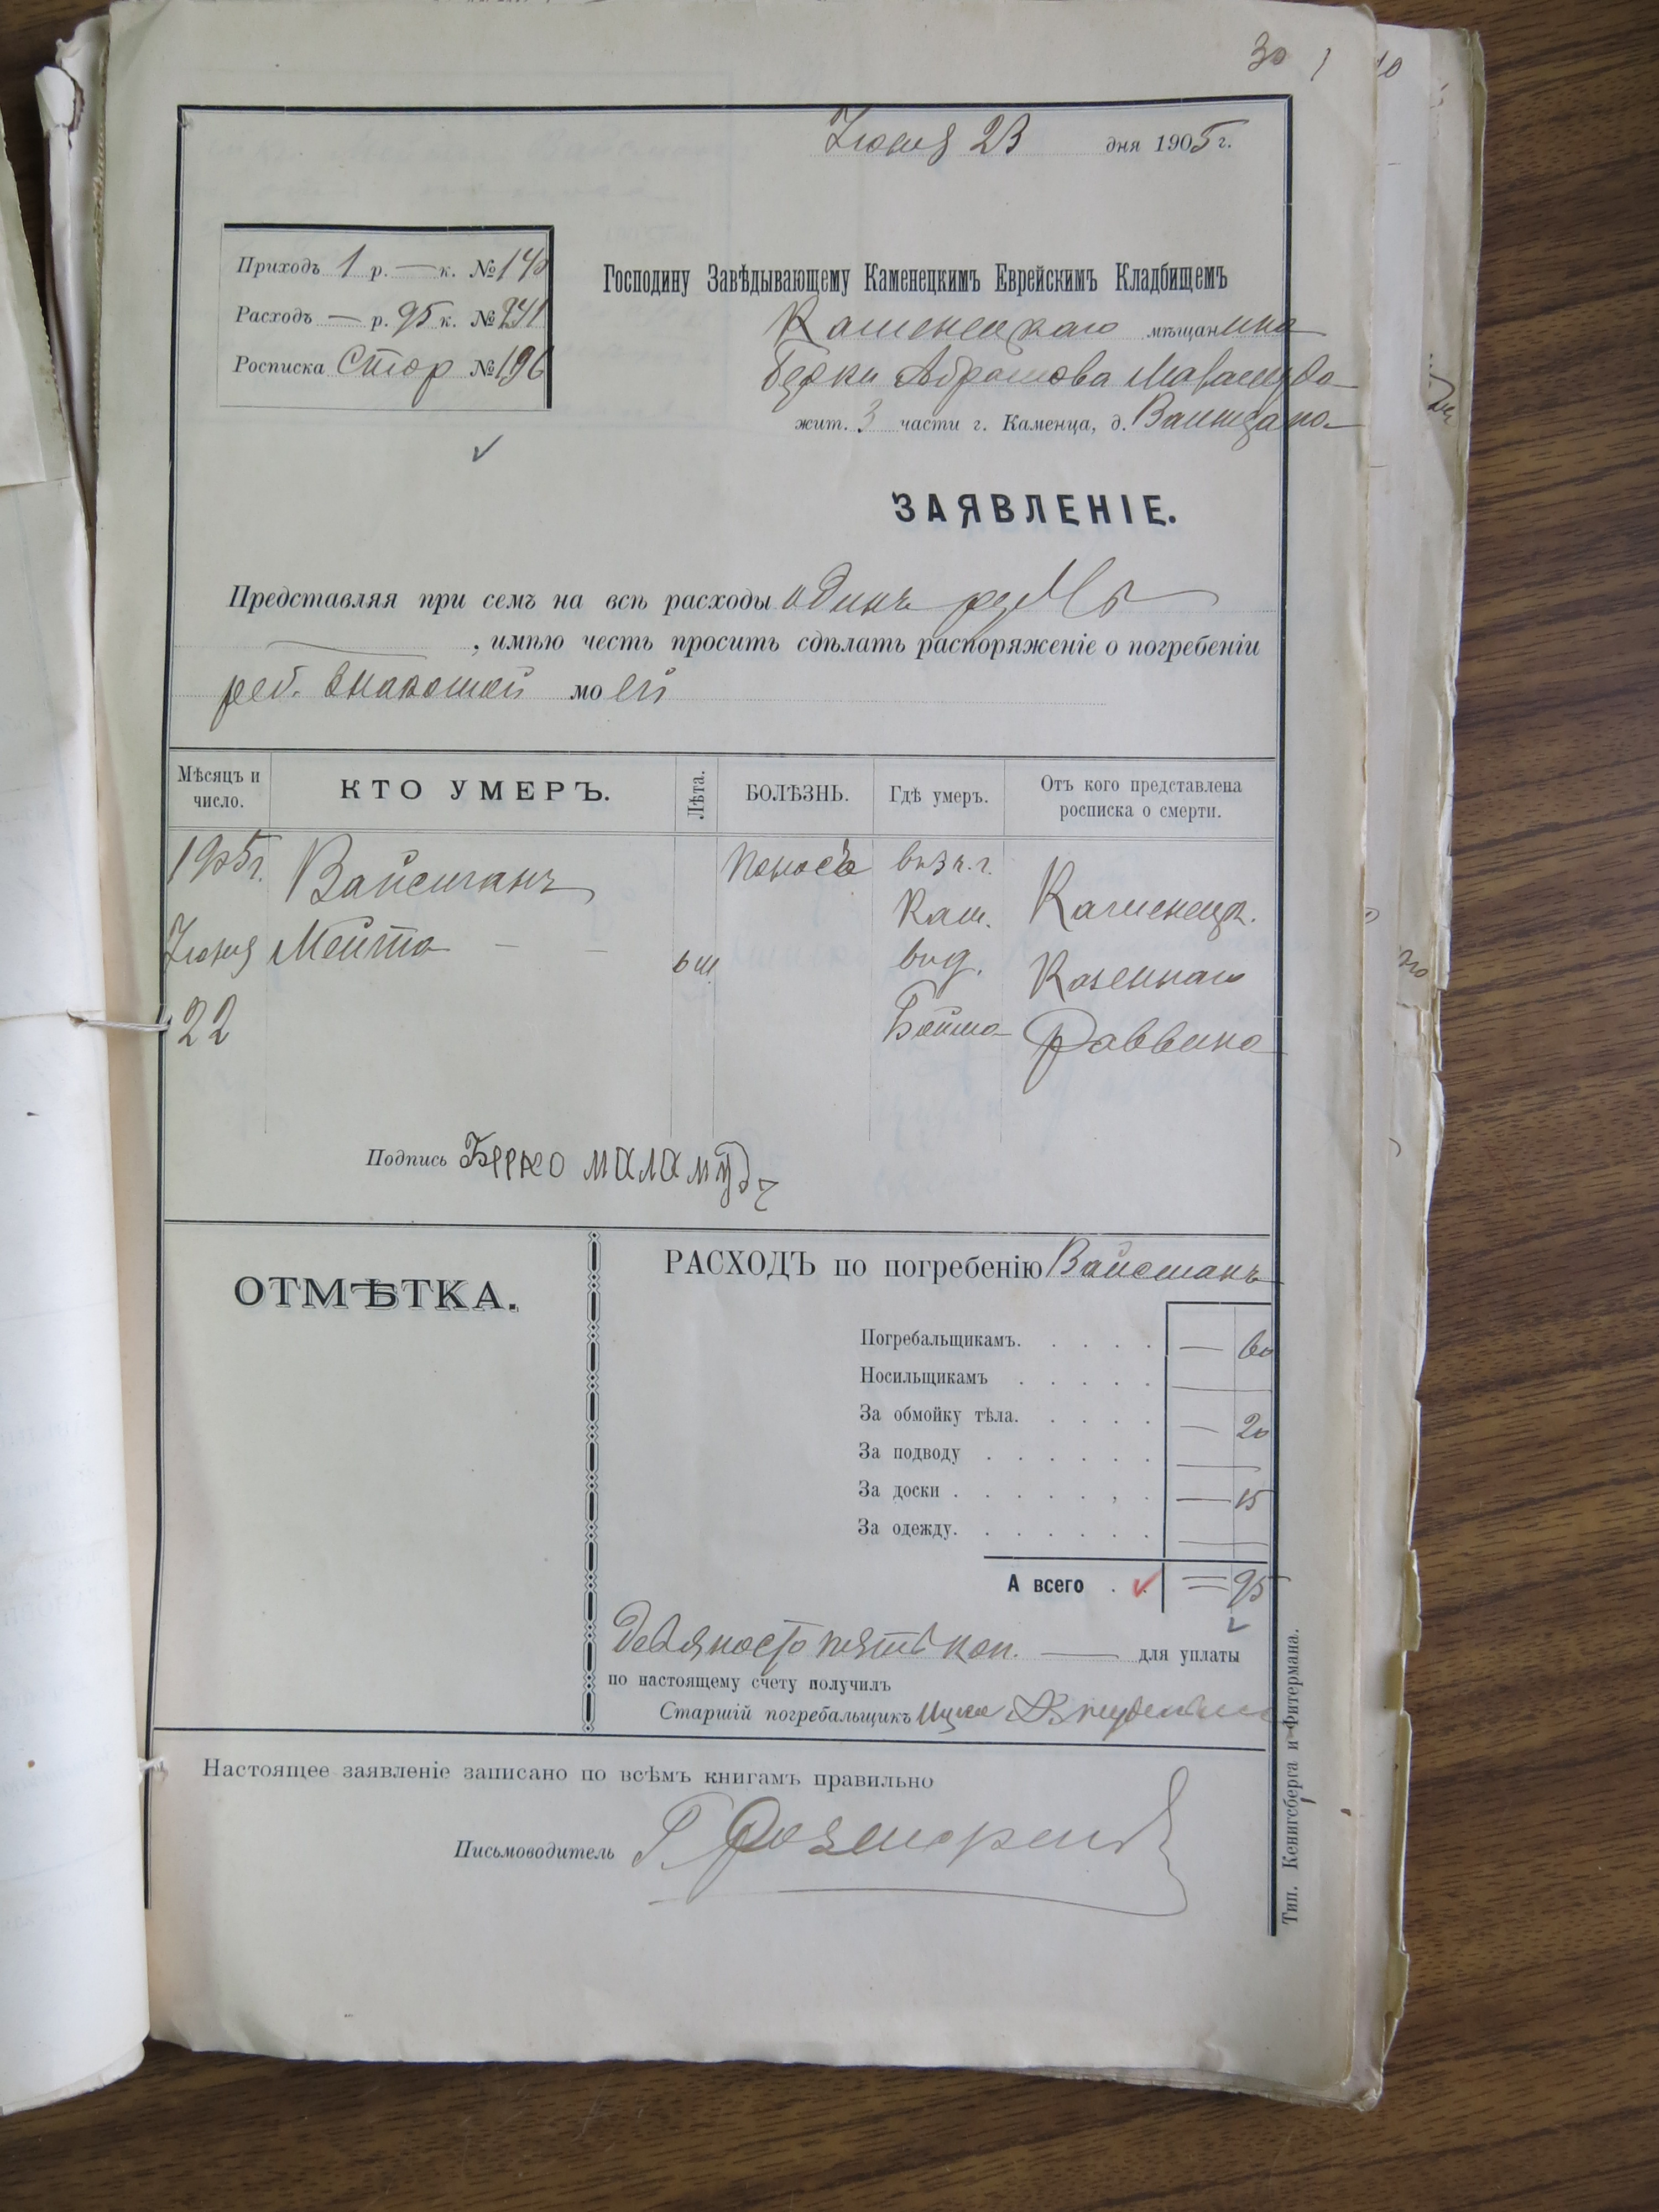 30
10
Июня 23 дня 1905 г.
Приходъ 1 р. — к. №
Расходъ — р. 95 к. № 241
Росписка Стор № 196
Господину Завѣдывающему Каменецкимъ Еврейскимъ Кладбищемъ
Каменецкаго мѣщанина
Берки Абрамова Маламуда
жит. 3 части г. Каменца, д.
ЗАЯВЛЕНІЕ.
Представляя при семъ на всѣ расходы одинъ рубль
, имѣю честь просить сдѣлать распоряженіе о погребеніи
реб. знакомой моей
Мѣсяцъ и число.
КТО УМЕРЪ.
Лѣта.
БОЛѢЗНЬ.
Гдѣ умеръ.
Отъ кого представлена росписка о смерти.
1905 г. Вайсманъ Поносъ въ 3 ч. г.
Кам. Каменецк.
Июня Мейта 6 м. Казеннаго
22 Раввина
Подпись Берко маламудъ
ОТМѢТКА.
РАСХОДЪ по погребенію Вайсманъ
Погребальщикамъ. — 60
Носильщикамъ —
За обмойку тѣла. — 20
За подводу —
За доски — 15
За одежду. —
А всего = 95
Девяносто пять коп. — для уплаты
по настоящему счету получилъ
Старшій погребальщикъ Ицко
Настоящее заявленіе записано по всѣмъ книгамъ правильно
Письмоводитель
Тип. Кенигсберга и Фитермана.